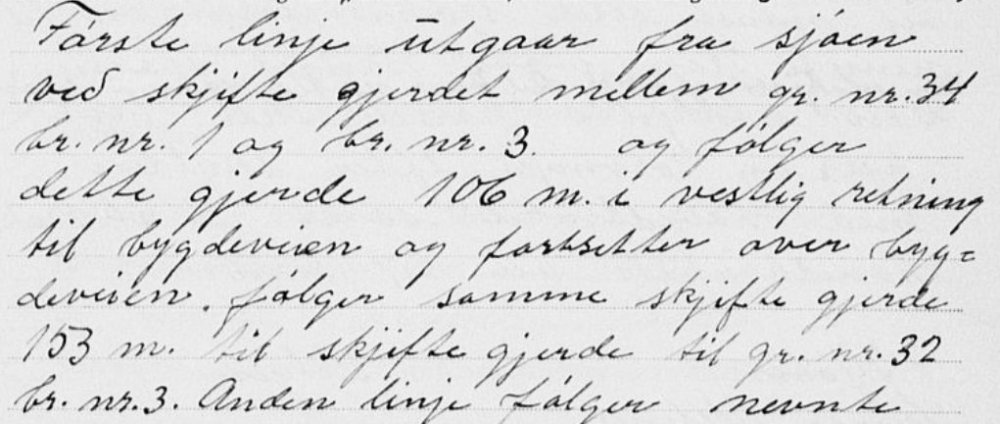 Første linje utgaar fra sjøen
ved skjifte gjerdet mellem gr. nr. 34
br. nr. 1 og br. nr. 3. og følger
dette gjerde 106 m. i vestlig retning
til bygdeveien og fortsetter over byg=
deveien, følger samme skjifte gjerde
153 m. til skjifte gjerde til gr. nr. 32
br. nr. 3. Anden linje følger nevnte